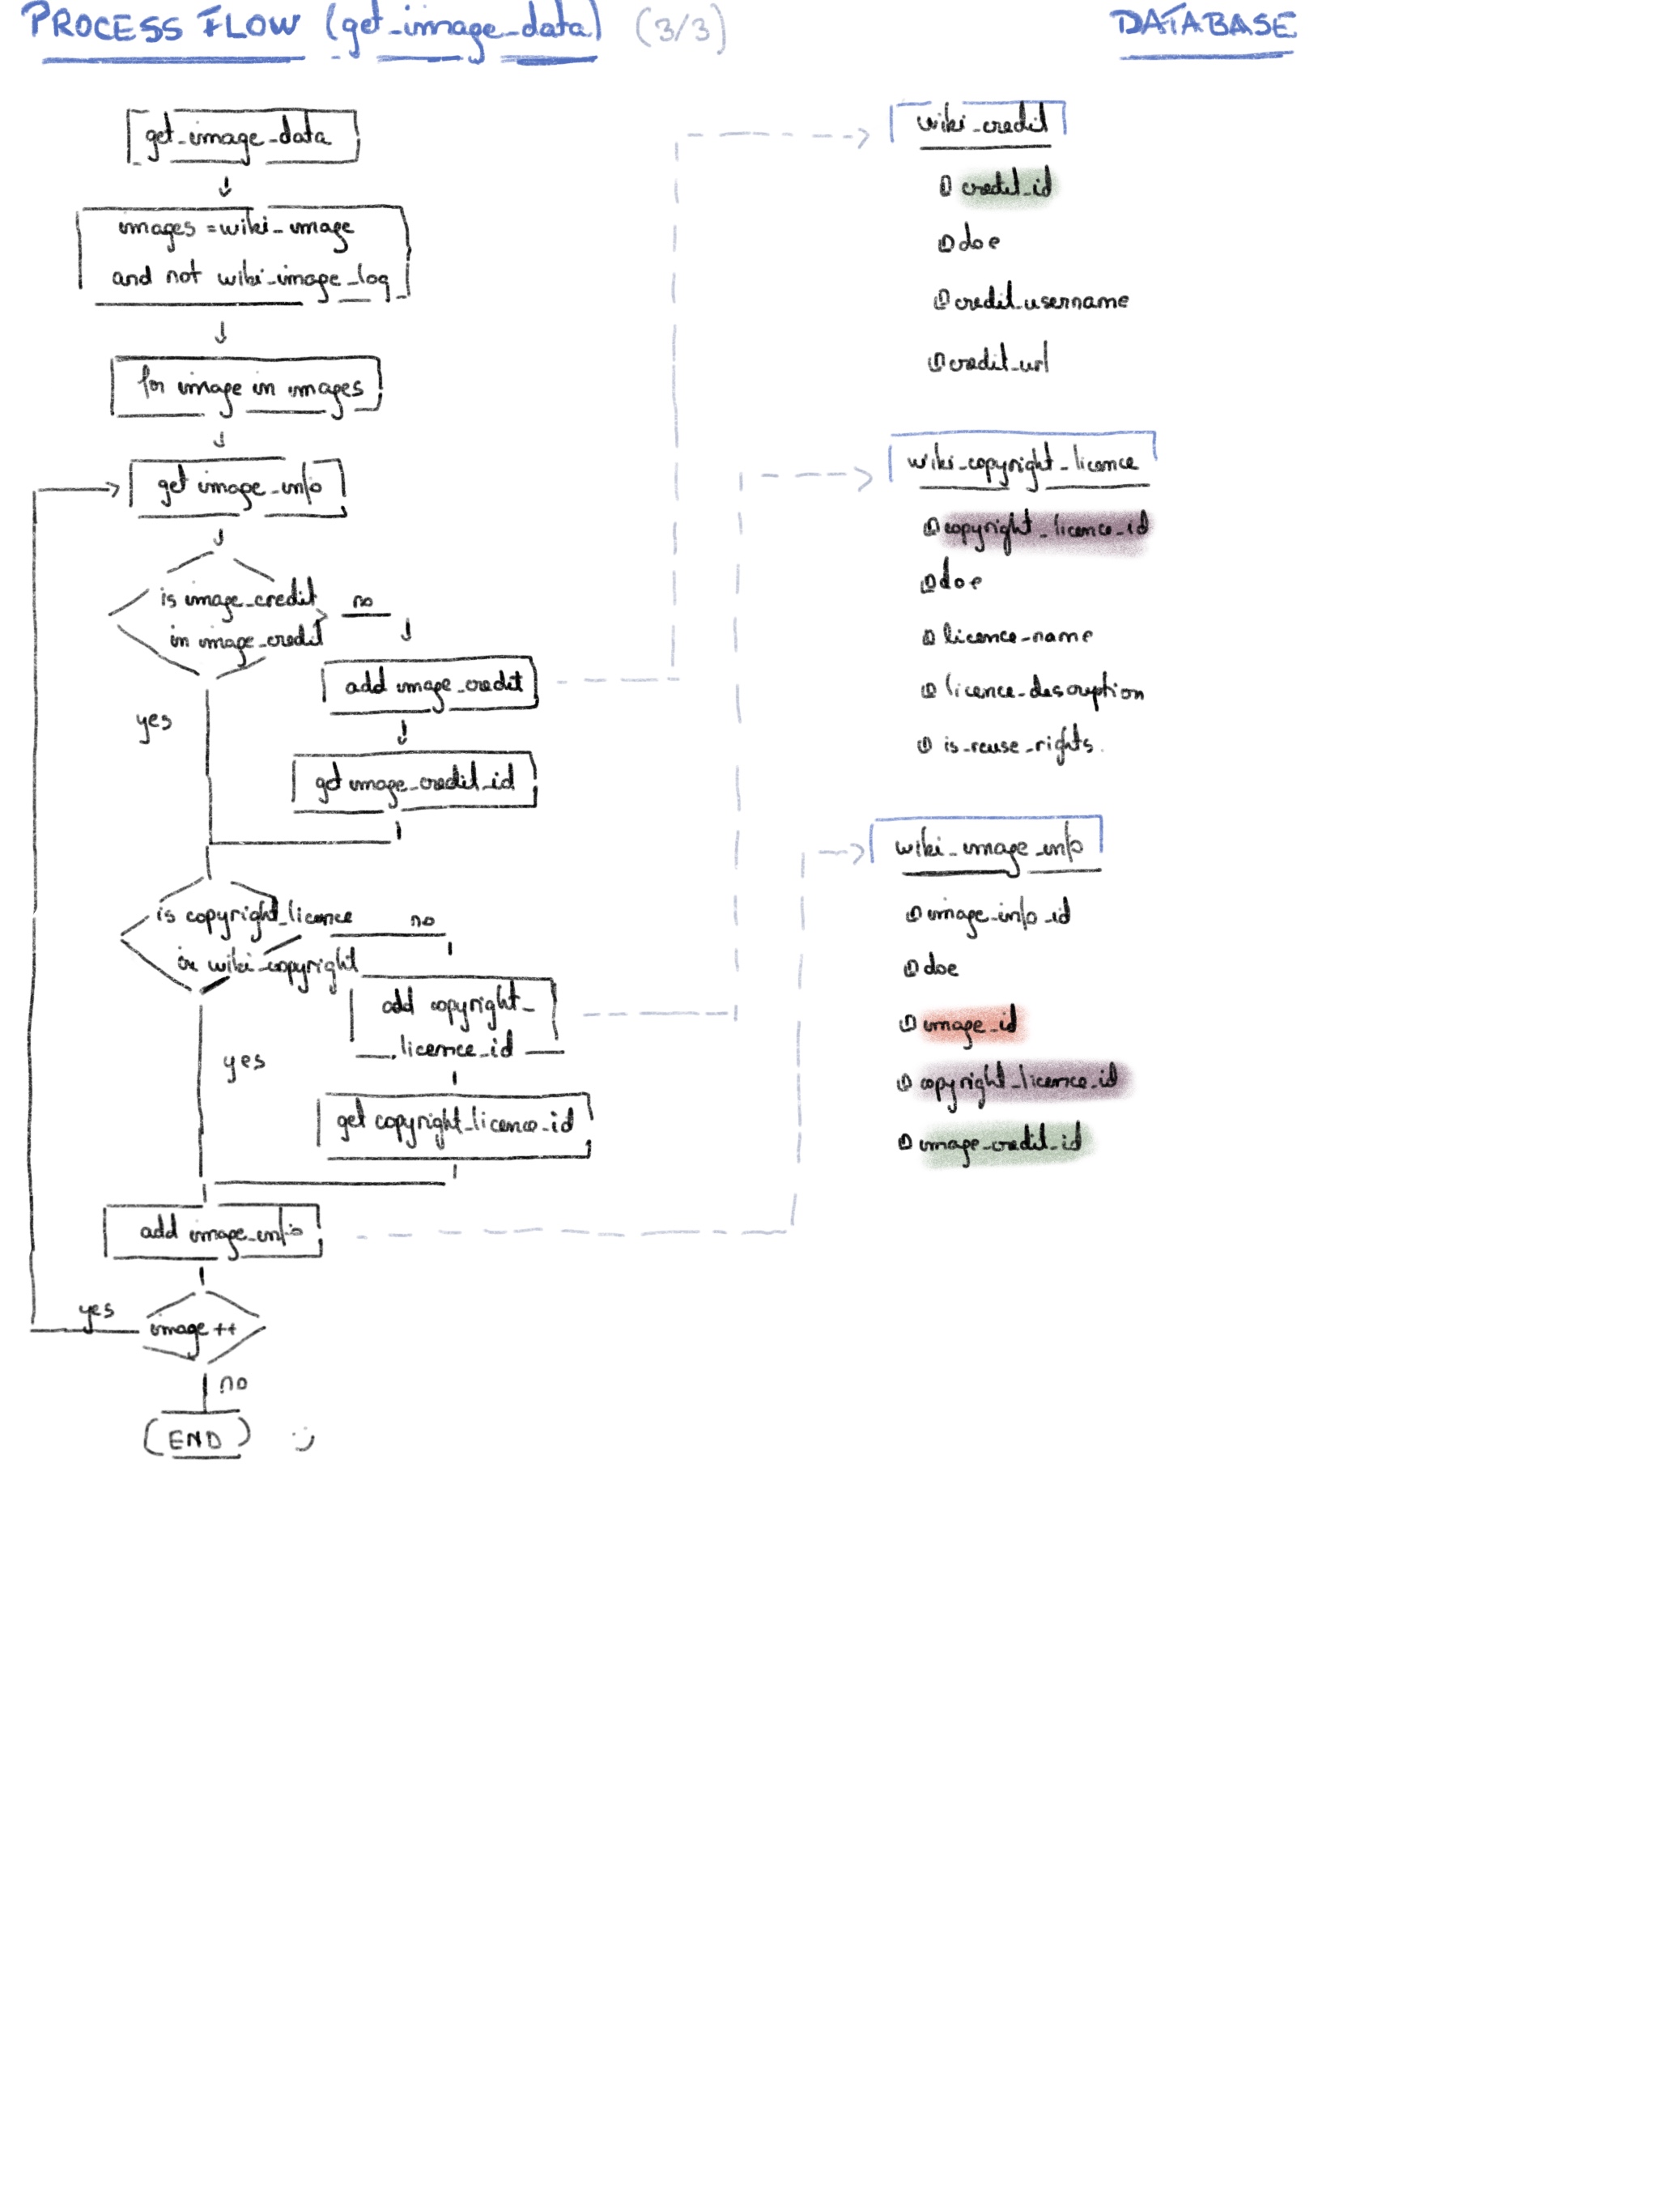 PROCESS FLOW (get_image_data) (3/3)
get_image_data
images = wiki_image
and not wiki_image_log
for image in images
get image_info
is image_credit
in image_credit
no
add image_credit
yes
get image_credit_id
is copyright_licence
no
in wiki_copyright
add copyright_
licence_id
yes
get copyright_licence_id
add image_info
yes
image ++
no
END
DATABASE
wiki_credit
credit_id
doe
credit_username
credit_url
wiki_copyright_licence
copyright_licence_id
doe
licence_name
licence_description
is_reuse_rights
wiki_image_info
image_info_id
doe
image_id
copyright_licence_id
image_credit_id